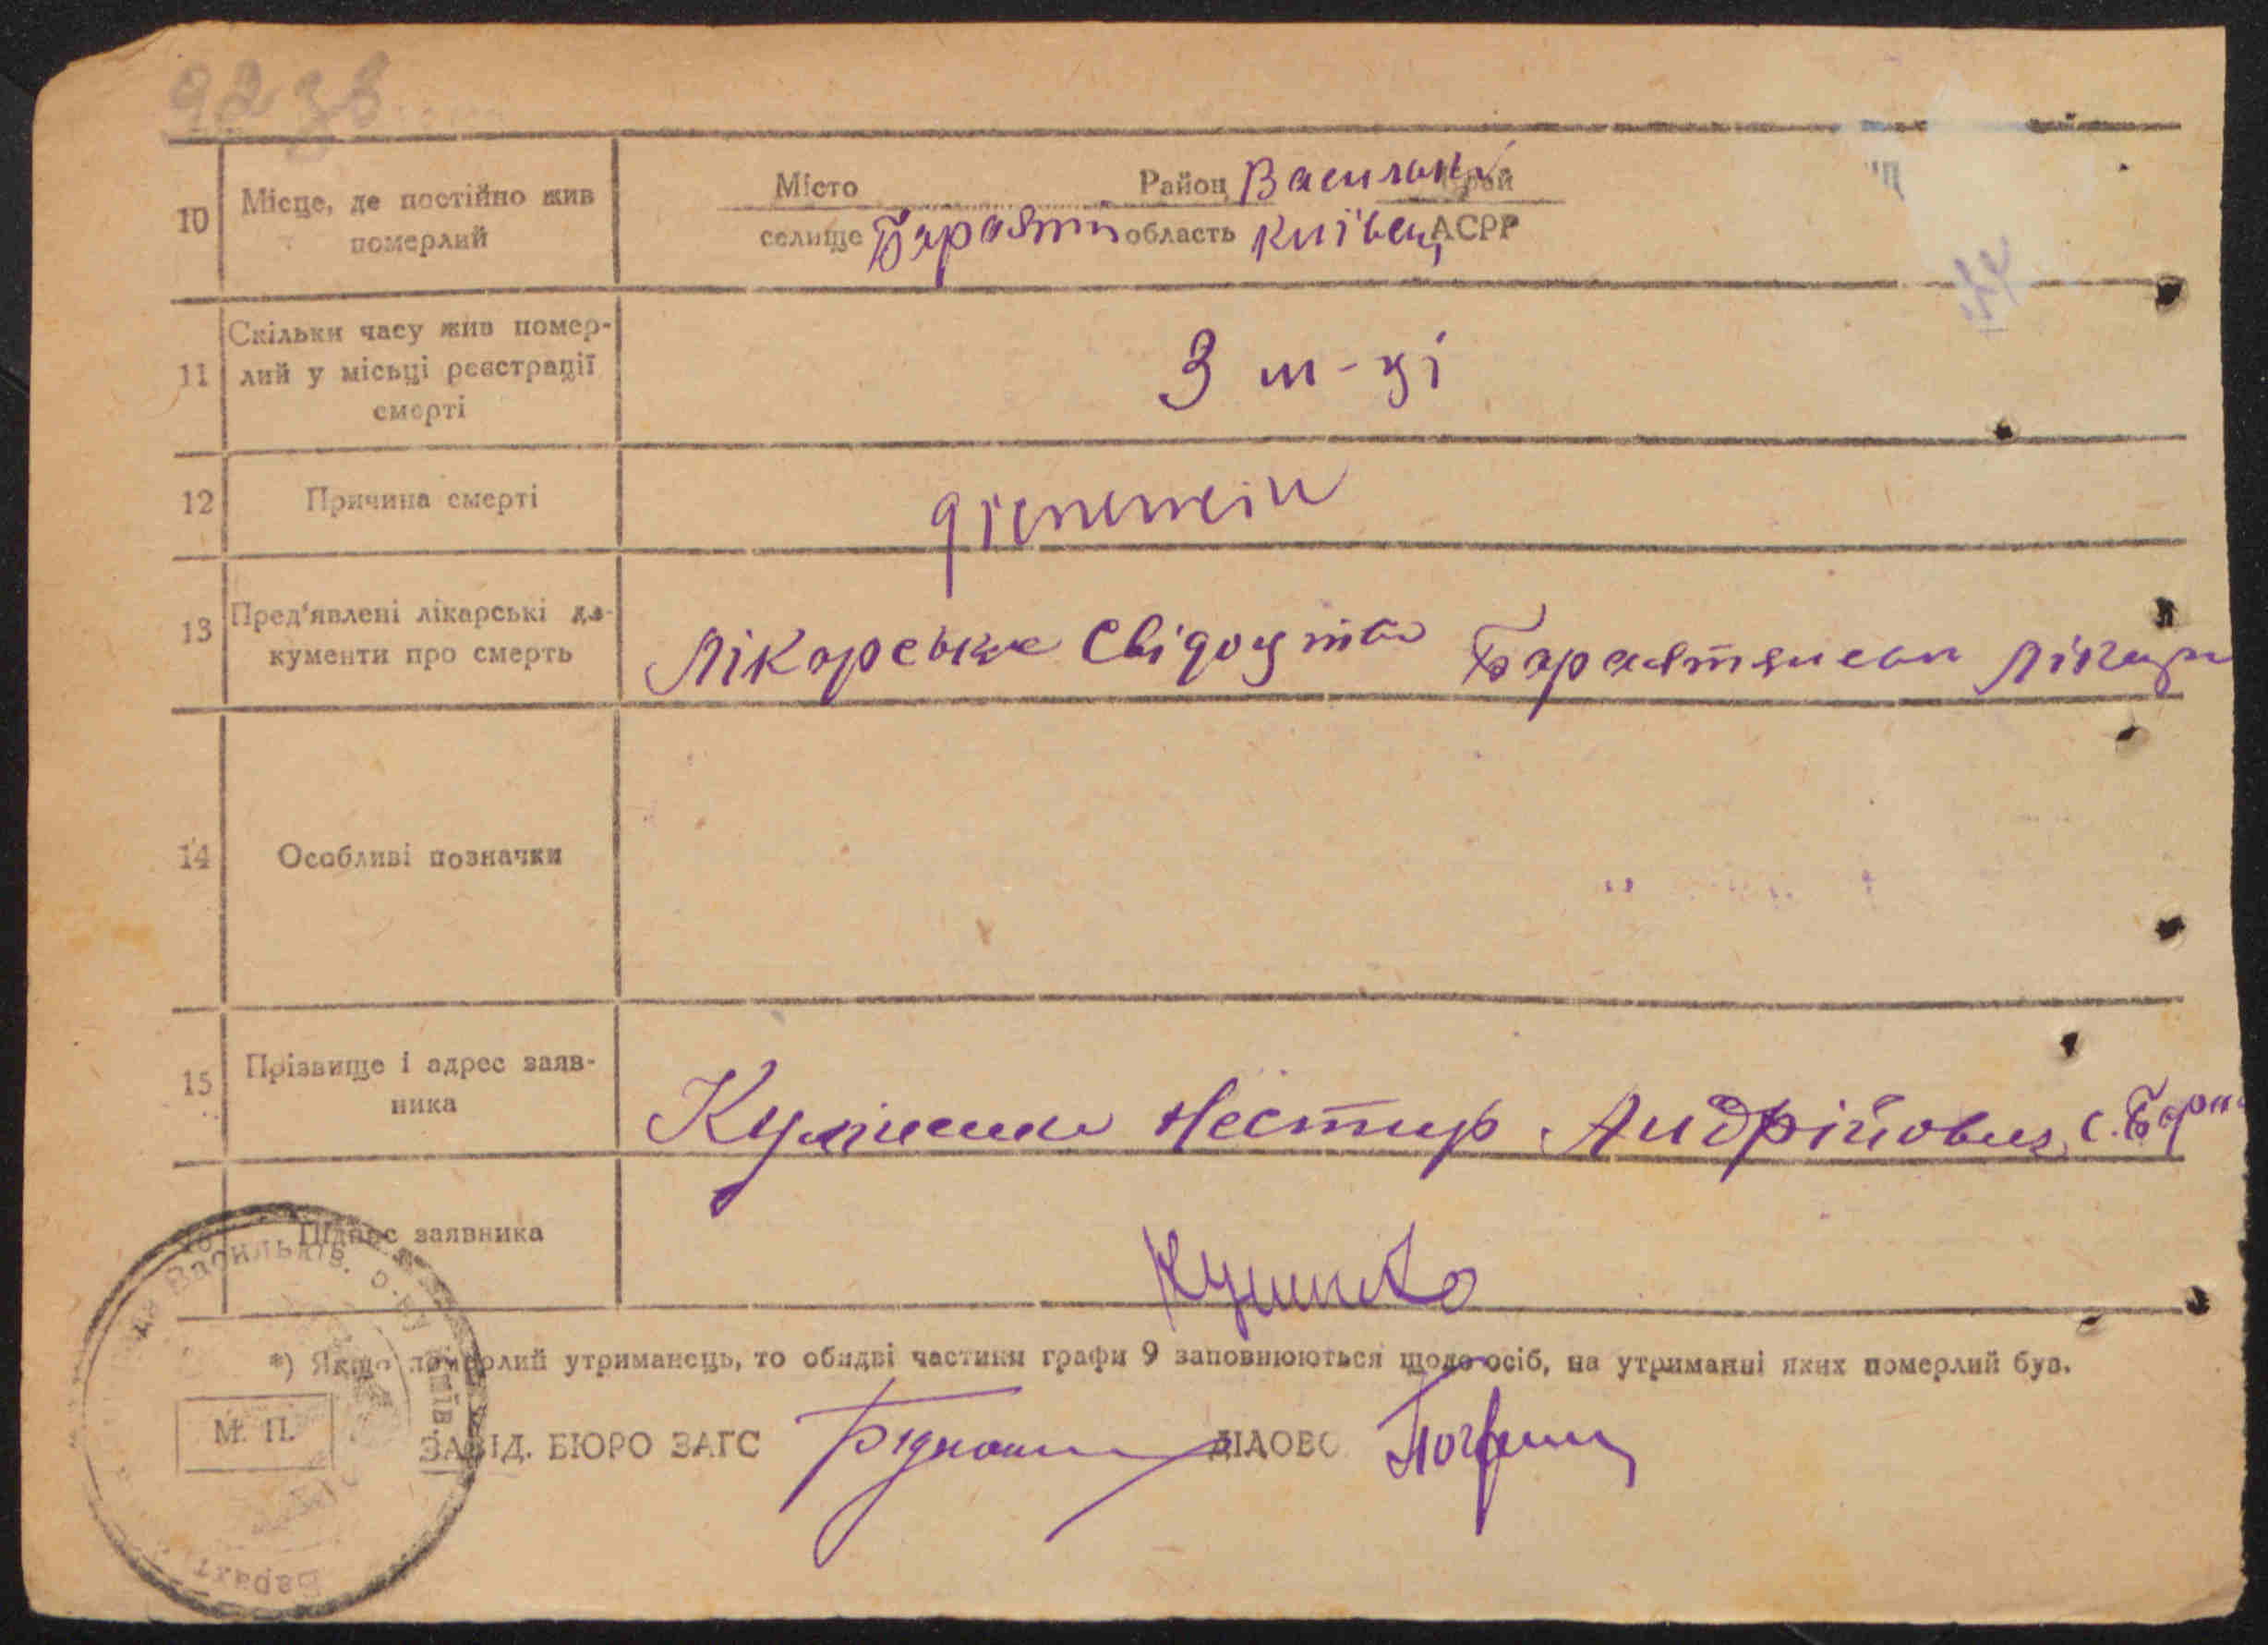 92 зв
10 Місце, де постійно жив померлий
Місто Район Васильків край
селище Барахти область Київськ АСРР
11 Скільки часу жив помер-
лий у місьці реєстрації
смерті
3 м-ці
12 Причина смерті
13 Пред'явлені лікарські до-
кументи про смерть
Лікарське свідоцтво Барахтянськ лікар
14 Особливі позначки
15 Прізвище і адрес заяв-
ника
Нестир Андрійович с. Барах
16 Підпис заявника
*) Якщо померлий утриманець, то обидві частини графи 9 заповнюються щодо осіб, на утриманні яких померлий був.
М. П.
ЗАВІД. БЮРО ЗАГС ДІЛОВОД
Васильків. р-ну Київ.
Барахт